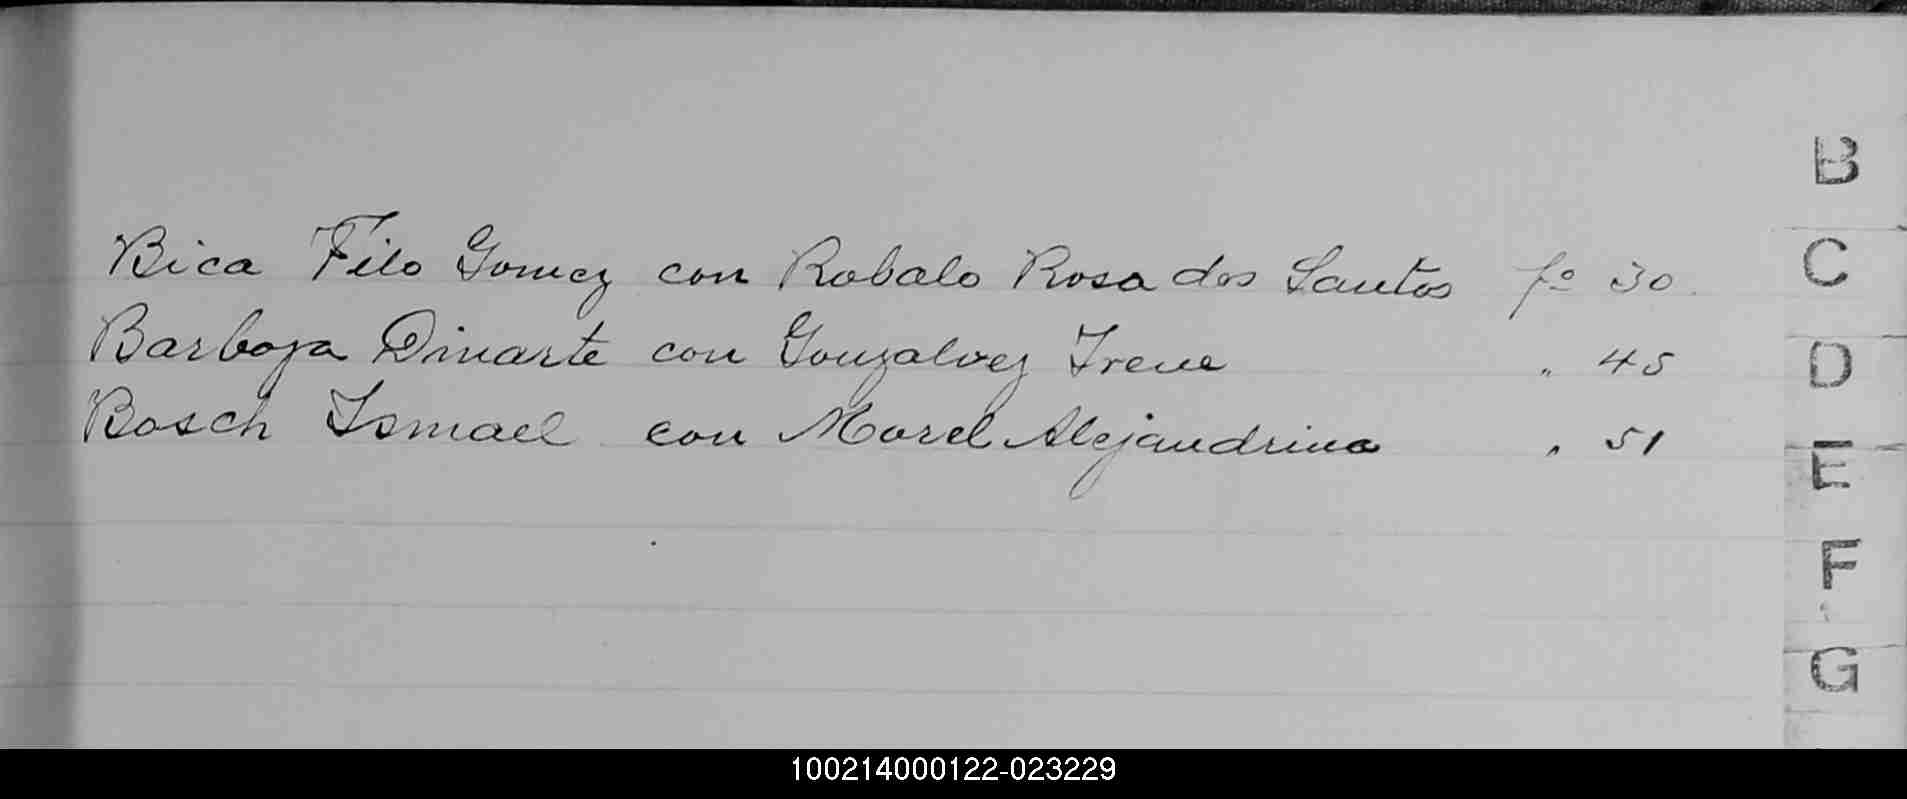 Bica Filo Gomez con Robalo Rosa dos Santos fº 30
Barboza Dinarte con Gonzalvez Irene " 45
Bosch Ismael con Morel Alejandrina " 51
B
C
D
E
F
G
100214000122-023229